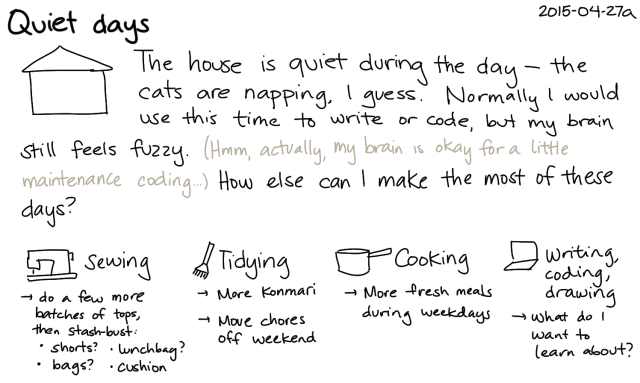 Quiet days
2015-04-27a
The house is quiet during the day – the
cats are napping, I guess. Normally I would
use this time to write or code, but my brain
still feels fuzzy. (Hmm, actually, my brain is okay for a little
maintenance coding...) How else can I make the most of these
days?
Sewing
→ do a few more
batches of tops,
then stash-bust:
• shorts? • lunchbag?
• bags? • cushion
Tidying
→ More Konmari
→ Move chores
off weekend
Cooking
→ More fresh meals
during weekdays
Writing,
coding,
drawing
→ What do I
want to
learn about?